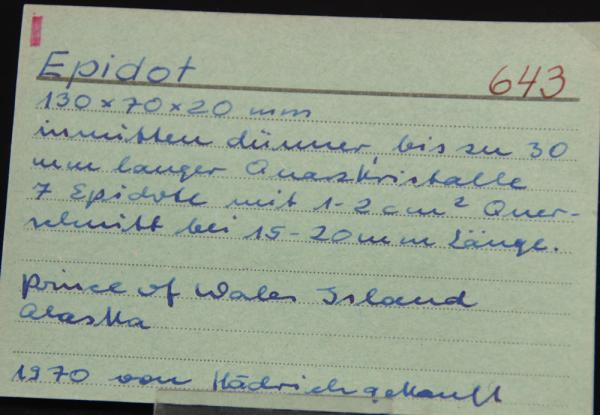 Epidot 643
130×70×20 mm
inmitten dünner, bis zu 30
mm langer Quarzkristalle
7 Epidote mit 1-2 cm² Quer-
schnitt bei 15-20 mm Länge.
Prince of Wales Island
Alaska
1970 von Hädrich gekauft